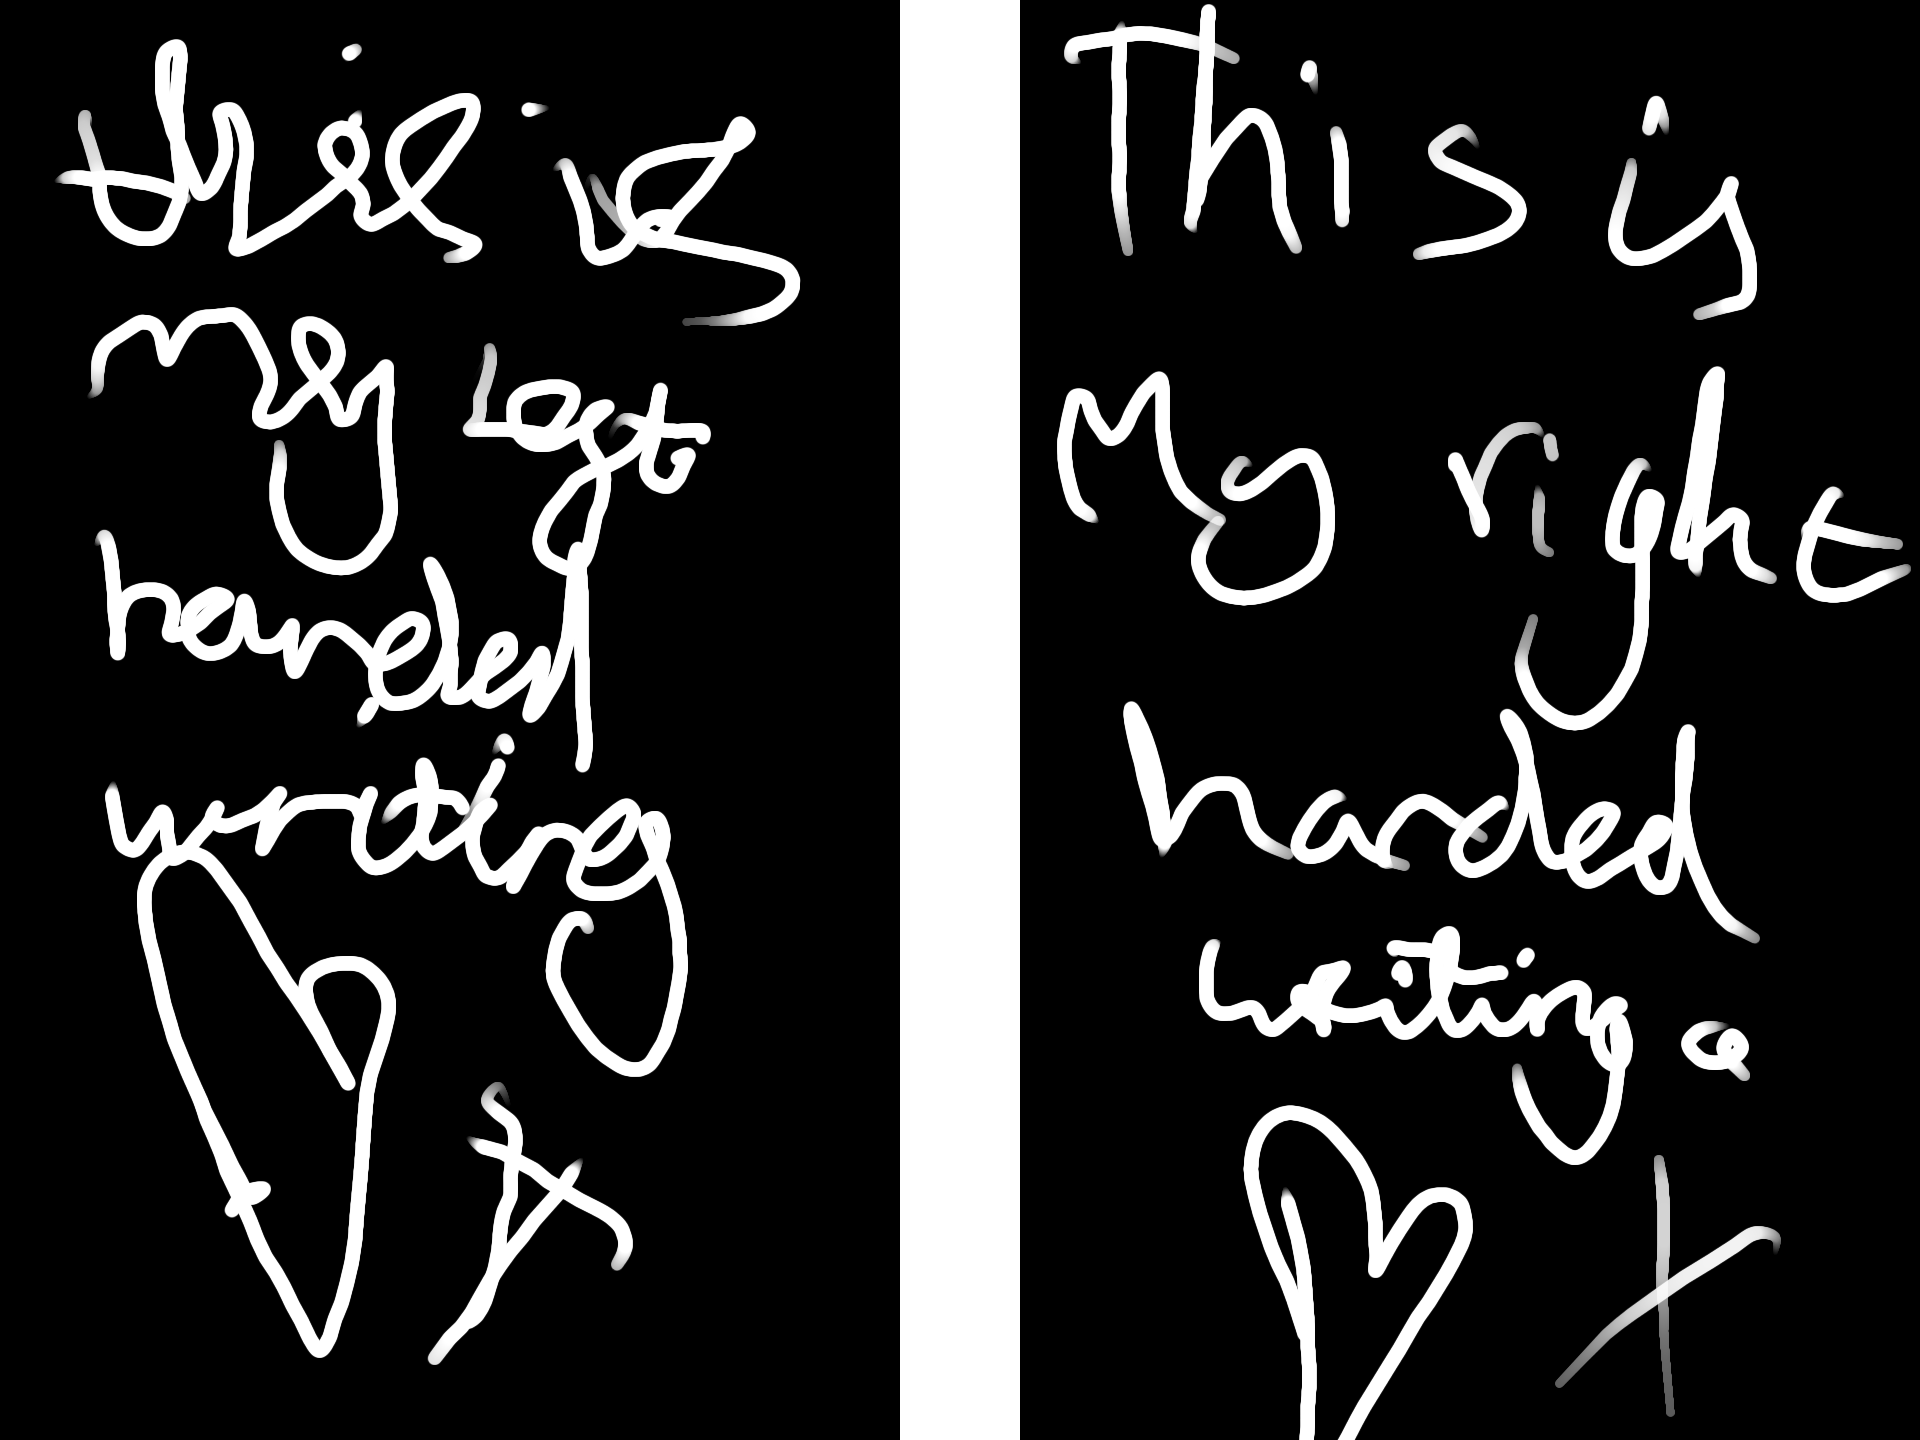 this is
my Left
handed
writing
x
This is
My right
handed
writing
x